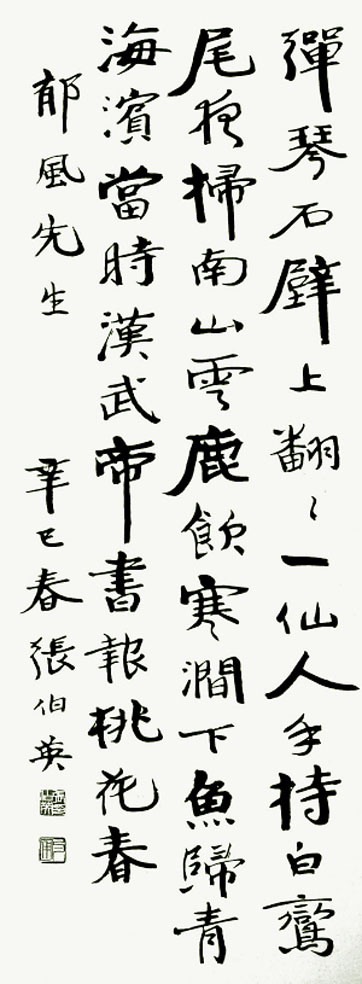 彈琴石壁上翻〻一仙人手持白鸞
尾夜掃南山雲鹿飲寒澗下魚歸青
海濱當時漢武帝書報桃花春
郁風先生
辛巳春張伯英